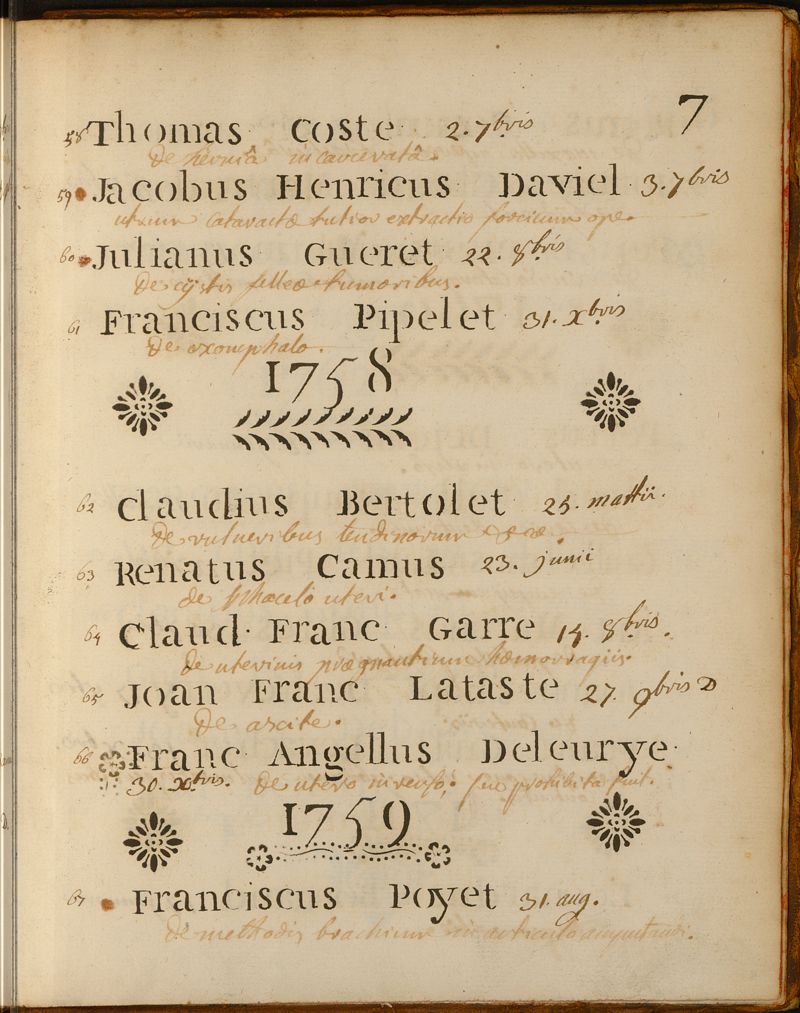 7
58 Thomas Coste 2. 7bris
De herniâ incarceratâ.
59 Jacobus Henricus Daviel 3. 7bris
utrum cataractæ tutior extractio forcicum ope.
60 Julianus Gueret 22. 8bris
De cystis felleæ tumoribus.
61 Franciscus Pipelet 31. Xbris
De exomphalo.
1758
62 Claudius Bertolet 25. martii.
De vulneribus tendinorum
63 Renatus Camus 23. junii
de sphacelo uteri.
64 Claud. Franc Garre 14. 8bris.
de uterinis prægnantium hæmorragiis.
65 Joan Franc Lataste 27. 9bris
De ascite.
66 Franc Angellus Deleurye.
30. Xbris. De utero inverso, prohibita fuit.
1759
67 Franciscus Poyet 31. aug.
de methodis brachium in articulo amputandi.